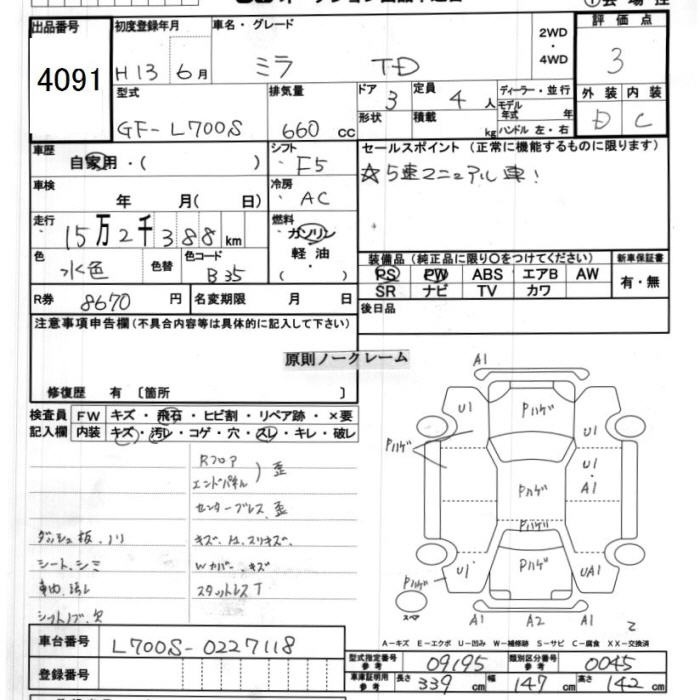 出品番号 初度登録年月 車名・グレード 2WD・4WD 評価点
4091 H13 6月 ミラ TD 3
型式 排気量 ドア 定員 ディーラー・並行 外装 内装
GF-L700S 660 cc 3 4 人 モデル年式 年 D C
形状 積載 kg ハンドル 左・右
車歴 自家用・( ) シフト F5 セールスポイント (正常に機能するものに限ります)
車検 年 月( 日) 冷房 AC ☆5速マニュアル車!
走行 15万2千388km 燃料 ガソリン 軽油 ( )
色 水色 色替 色コード B35
装備品 (純正品に限り○をつけてください) 新車保証書
PS PW ABS エアB AW 有・無
SR ナビ TV カワ
R券 8670 円 名変期限 月 日 後日品
注意事項申告欄(不具合内容等は具体的に記入して下さい)
原則ノークレーム
修復歴 有 〔箇所 〕
検査員 FW キズ・飛石・ヒビ割・リペア跡・×要
記入欄 内装 キズ・汚レ・コゲ・穴・スレ・キレ・破レ
Rフロア
エンドパネル )歪
センタープレス、歪
ダッシュ板、ノリ キズ、A、スリキズ、
シート、シミ Wカバー、キズ
車内、汚レ スタットレスT
シフトノブ、欠
A1
U1 Pハゲ U1
Pハゲ U1
Pハゲ A1
Pハゲ
Pハゲ U1 Pハゲ UA1
スペア A1 A2 A1 2
A-キズ E-エクボ U-凹み W-補修跡 S-サビ C-腐食 XX-交換済
車台番号 L700S-0227118
型式指定番号 参考 09195 類別区分番号 参考 0045
登録番号 車庫証明用 参考 長さ 339 cm 幅 147 cm 高さ 142 cm